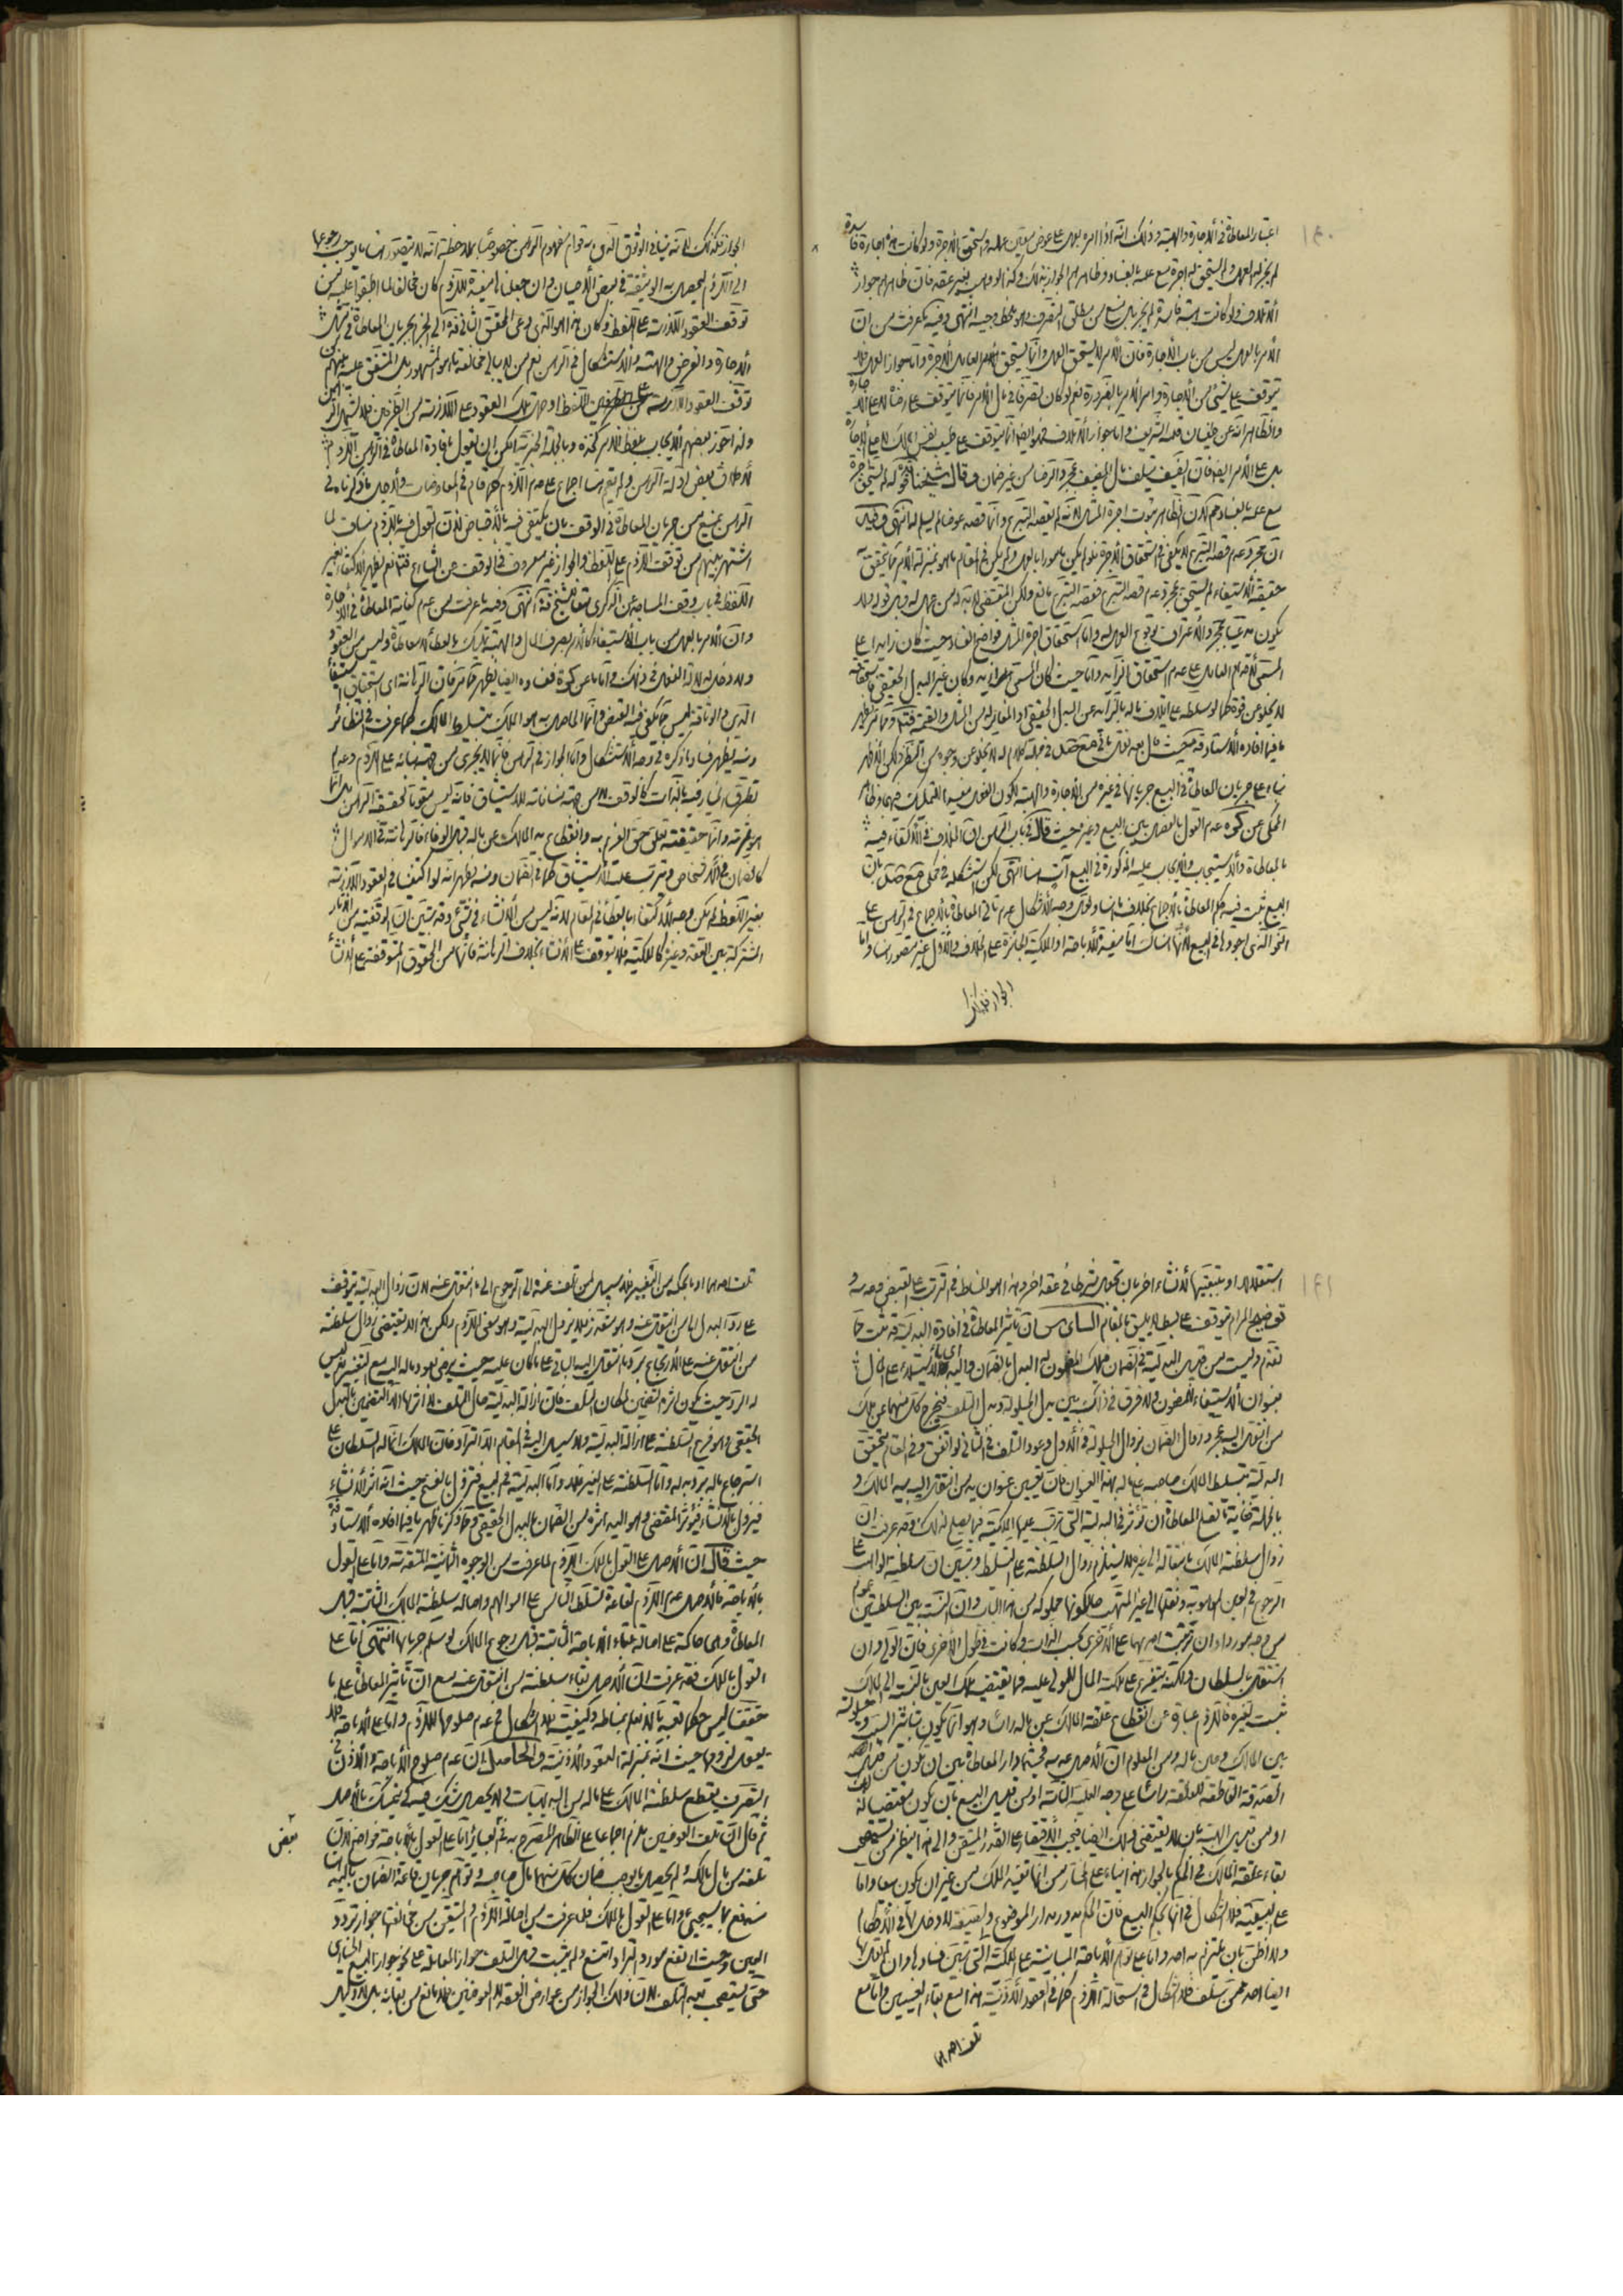 ١٩٠
اعتبار المعاطاة في الاجارة والهبة وذلك انه اذا امره بعمل على عوض معين عمله واستحق الاجرة ولو كانت هذه اجارة فاسدة
لم يجز له العمل ولم يستحق اجرة مع علمه بالفساد وظاهرهم الجواز بذلك وكذا لو وهب بغير عقد فان ظاهرهم جواز
الاتلاف ولو كانت هبة فاسدة لم يجز بل منع من مطلق التصرف وهو ملخط وجيه انتهى وفيه ما عرفت من ان
الامر بالعمل ليس من باب الاجارة فان الآمر لا يستحق العمل وانما يستحق العامل الاجرة واما جواز العمل فلا
يتوقف على شيء من الاجارة وامر الآمر بالضرورة نعم لو كان تصرفا في مال الآمر فانما يتوقف على رضاه لا على الاجارة
والظاهر انه عن طغيان قلمه الشريف واما جواز الاتلاف فهو ايضا انما يتوقف على طيب نفس المالك لا على الاجارة
بل على الامر ايضا فان الضيف يتلف مال المضيف بمجرد الرضا من غير ضمان وقال شيخنا قده قوله لم يستحق اجرة
مع علمه بالفساد ممنوع لان الظاهر ثبوت اجرة المثل لانه لم يقصد التبرع وانما قصد عوضا لم يسلم له انتهى وفيه
ان مجرد عدم قصد التبرع لا يكفي في استحقاق الاجرة ولو لم يكن مامورا بالعمل ولم يكن في المقام ما هو بمنزلة الامر مما يتحقق به
حقيقة الاستيفاء لم يستحق بمجرد عدم قصد التبرع فقصد التبرع مانع ولكن المقتضي لا بد له من عمل له وقبل قوله ولا
يكون مدعيا بمجرد الاعتراف بوقوع العمل له واما استحقاق اجرة المثل فواضح الفساد حيث كان زايدا على
المسمى لاقدام العامل على عدم استحقاق الزايد واما حيث كان المسمى
لا يخلو عن قوة كما لو سلطه على اتلاف ماله بالزايد عن البدل الحقيقي او المغاير له من المثل والقيمة فتدبر ومما مر ظهر
ما فيما افاده الاستاد قده حيث قال بعد نقل ما في جمع صل في جملة كلام له لا يخلو عن وجوه من النظر ولكن الاظهر
بناء على جريان المعاطاة في البيع جريانها في غيره من الاجارة والهبة لكون الفعل مفيدا للتمليك فيهما وظاهر
المحكي عن كره عدم القول بالفصل بين البيع وغيره حيث قال في باب الرهن ان الخلاف في الاكتفاء فيه
بالمعاطاة والاستيجاب والايجاب عليه المذكورة في البيع آت هنا انتهى لكن استشكله في محكي جمع صل بان
البيع ثبت فيه حكم المعاطاة بالاجماع بخلاف ما هنا ولعل وجه الاشكال عدم تأتي المعاطاة بالاجماع في الرهن على
النحو الذي اجروها في البيع لانها هناك اما مفيدة للاباحة او الملكية الجائزة على الخلاف والاول غير متصور هنا واما
الجواز فكذلك
الجواز فكذلك لانه ينافي الوثوق الذي به قوام مفهوم الرهن خصوصا بملاحظة انه لا يتصور هنا ما يوجب رجوعها
الى اللزوم ليحصل به الوثيقة في بعض الاحيان وان جعلناها مفيدة للزوم كان مخالفا لما اطبقوا عليه من
توقف العقود اللازمة على اللفظ وكان هذا هو الذي دعى المحقق الثاني قده الى الجزم بجريان المعاطاة في مثل
الاجارة والقرض والهبة والاستشكال في الرهن نعم من لا يبالي مخالفة ما هو المشهور بل المتفق عليه بينهم من
توقف العقود اللازمة على اللفظ او حمل تلك العقود على اللازمة من الطرفين فلا يشمل الرهن
ولذا جوز بعضهم الايجاب بلفظ الامر كخذه وبالجملة الخبرية امكن ان يقول بافادة المعاطاة في الرهن اللزوم
لاطلاق بعض ادلة الرهن ولم يقم هنا اجماع على عدم اللزوم كما قام في المعاوضات ولاجل ما ذكرنا في
الرهن يمنع من جريان المعاطاة في الوقف بان يكتفي فيه بالاقباض لان القول فيه باللزوم مناف لما
اشتهر بينهم من توقف اللزوم على اللفظ والجواز غير معروف في الوقف من الشارع فتدبر نعم يظهر الاكتفاء بغير
اللفظ في باب وقف المساجد من الذكرى تبعا للشيخ قده انتهى وفيه ما عرفت من عدم كفاية المعاطاة في الاجارة
وان الامر بالعمل من باب الاستيفاء كالامر بصرف المال والهبة تمليك بالعطاء لا معاطاة وليس من العقود
ولا دخل له لدلالة الفعل في ذلك واما ما عن كره ففساده ايضا يظهر مما مر فان الرهانة اي استحقاق استيفاء
الدين والوثاقة ليس مما يكفي فيه القبض وانما الحاصل به هو الملك بتسليط المالك كما عرفت في النظائر
ومنه يظهر فساد ما ذكره في وجه الاستشكال واما الجواز في الرهن فانما لا يجري من جهة بنائه على اللزوم وعدم
تطرق الخيار فيه بالذات كالوقف لا من جهة منافاته للاستيثاق فانه ليس مقوما لحقيقة الرهن بل انما
هو ثمرته وانما حقيقته تعلق حق الغير به وانقطاع يد المالك عن ماله قبل الوفاء فالرهانة في الاموال
كالضمان في الاشخاص ويترتب عليه الاستيثاق كما في الضمان ومنه يظهر انه لو اكتفينا في العقود اللازمة
بغير اللفظ لم يكن وجه للاكتفاء بالعطاء في المقام لانه ليس من الانشاء في شيء وقد تبين ان الوقفية من الآثار
المشتركة بين العقد وغيره كالملكية فلا يتوقف على الانشاء بخلاف الرهانة فانها من الحقوق المتوقفة على الانشاء
١٩١
استقلالا او بتبعيتها لانشاء اخر بان تجعل شرطا في عقد اخر وهذا هو المناط في الترتب على القبض وعدمه و
توضيح المرام يتوقف على بسط لا يليق بالمقام السادس ان تاثير المعاطاة في افادة البدلية قد ثبت مما
تقدم وليست من قبيل البدلية في الضمان
بعنوان الاستيفاء للمضمون ولا فرق في ذلك بين بدل الحيلولة وبدل التلف فيخرج كل منهما عن ملك
من انتقل اليه بمجرد زوال الضمان بزوال الحيلولة في الاول وعود التالف في الثاني لو اتفق وفي المقام يتحقق
البدلية بتسليط المالك صاحبه على ماله بهذا العنوان فان تعيين عنوان يد من انتقل اليه بيد المالك و
بالجملة فغاية ما تفعل المعاطاة ان تؤثر في البدلية التي يترتب عليها الملكية فيما يصلح لذلك وقد عرفت ان
زوال سلطنة المالك بانتقاله الى غيره لا يستلزم زوال السلطنة على التسلط وتبين ان سلطنة الواهب على
الرجوع في العين الموهوبة ونقلها الى غير المتهب مع كونها مملوكة من هذا الباب وان النسبة بين السلطنتين عموم
من وجه موردا وان ترتبت احديهما على الاخرى بحسب الذات وكانت في طول الاخرى فان الولي وان
استقل بالسلطان ولكنه يتفرع على ملك المال للمولى عليه فما يقتضيه ملك العين بالنسبة الى المالك
ثبت لغيره فاللزوم عبارة عن انقطاع علقة المالك عن ماله راسا وهو انما يكون بتاثير السبب وحيلولته
بين المالك وبين ماله ومن المعلوم ان الاصل عدمه فحيثما دار المعاطاة بين ان يكون من قبيل
الصدقة القاطعة للعلقة راسا على وجه الغلبة التامة او من قبيل البيع بان يكون مقتضيا له
او من قبيل الهبة بان لا يقتضي ذلك ايضا فيجب الاقتصار على القدر المتيقن والى هذا ينظر من استصحب
بقاء علقة المالك في الحكم بالجواز هذا بناء على المختار من انها تفيد الملك من غير ان يكون بيعا واما
على البيعية فلا اشكال في انها بحكم البيع فان الحكم يدور مدار الموضوع والصيغة لا دخل لها في الاحكام
ولا اظن بان يلتزم به احد واما على توهم الاباحة المباينة على الملكية التي تبين فسادها وان لم يقل بها
ايضا احد ممن سلف فلا اشكال في استحالة اللزوم كما في العقود الاذنية هذا مع بقاء العينين واما مع
تلف احدهما
تلف احدهما او ما بحكمه من التغيير فلا سبيل لمن تلف عنده الى الرجوع الى ما انتقل عنه لان زوال البدلية يتوقف
على رد البدل الى من انتقل عنه وهو متعذر فلا يزول البدلية وهو معنى اللزوم ولكن هذا لا يقتضي زوال سلطنة
من انتقل عنه على الارتجاع برد ما انتقل اليه الباقي على ما كان عليه حيث يرضى بعود ماله اليه مع التغيير نعم ليس
له الرد حيث يكون اثره تضمين لمكان التلف فان ازالة البدلية حال التلف لا اثر لها الا التضمين بالبدل
الحقيقي وهو فرع السلطنة على ازالة البدلية ولا سبيل اليه في المقام الا التراد فان المالك انما له السلطان على
استرجاع ماله برد بدله واما السلطنة على الغير فلا واما البدلية في البيع فتزول بالفسخ حيث انه اثر الانشاء
فيزول بالانشاء فيؤثر المقتضي وهو اليد اثره من الضمان بالبدل الحقيقي ومما ذكرنا ظهر ما فيما افاده الاستاد قده
حيث قال ان الاصل على القول بالملك اللزوم لما عرفت من الوجوه الثمانية المتقدمة واما على القول
بالاباحة فالاصل عدم اللزوم لقاعدة تسلط الناس على اموالهم واصالة سلطنة المالك الثابتة قبل
المعاطاة وهي حاكمة على اصالة بقاء الاباحة الثابتة قبل رجوع المالك لو سلم جريانها انتهى اما على
القول بالملك فقد عرفت ان الاصل بقاء سلطنة من انتقل عنه مع ان تاثير المعاطاة على ما
حققنا ليس حكما تعبديا لا نعلم بمناطه وكيفيته فلا اشكال في عدم صلوحها للزوم واما على الاباحة فلا
يعقل لزومها حيث انه بمنزلة العقود الاذنية والحاصل ان عدم صلوح الاباحة والاذن في
التصرف بقطع سلطنة المالك على ماله من البديهيات لا يحصل شك فيه كي يتمسك بالاصل
ثم قال ان تلف العوضين ملزم اجماعا على الظاهر المصرح به في بعض العبائر اما على القول بالاباحة فواضح لان
بعض
تلفه من مال مالكه ولم يحصل ما يوجب ضمان كل منهما مال صاحبه وتوهم جريان قاعدة الضمان باليد هنا
مندفع بما سيجيء واما على القول بالملك فلما عرفت من اصالة اللزوم والمتيقن من مخالفتها جواز تراد
العين وحيث ارتفع مورد التراد امتنع ولم يثبت قبل التلف جواز المعاملة على نحو جواز البيع الخياري
حتى يستصحب بعد التلف لان ذلك الجواز من عوارض العقد لا العوضين فلا مانع من بقائه بل لا دليل